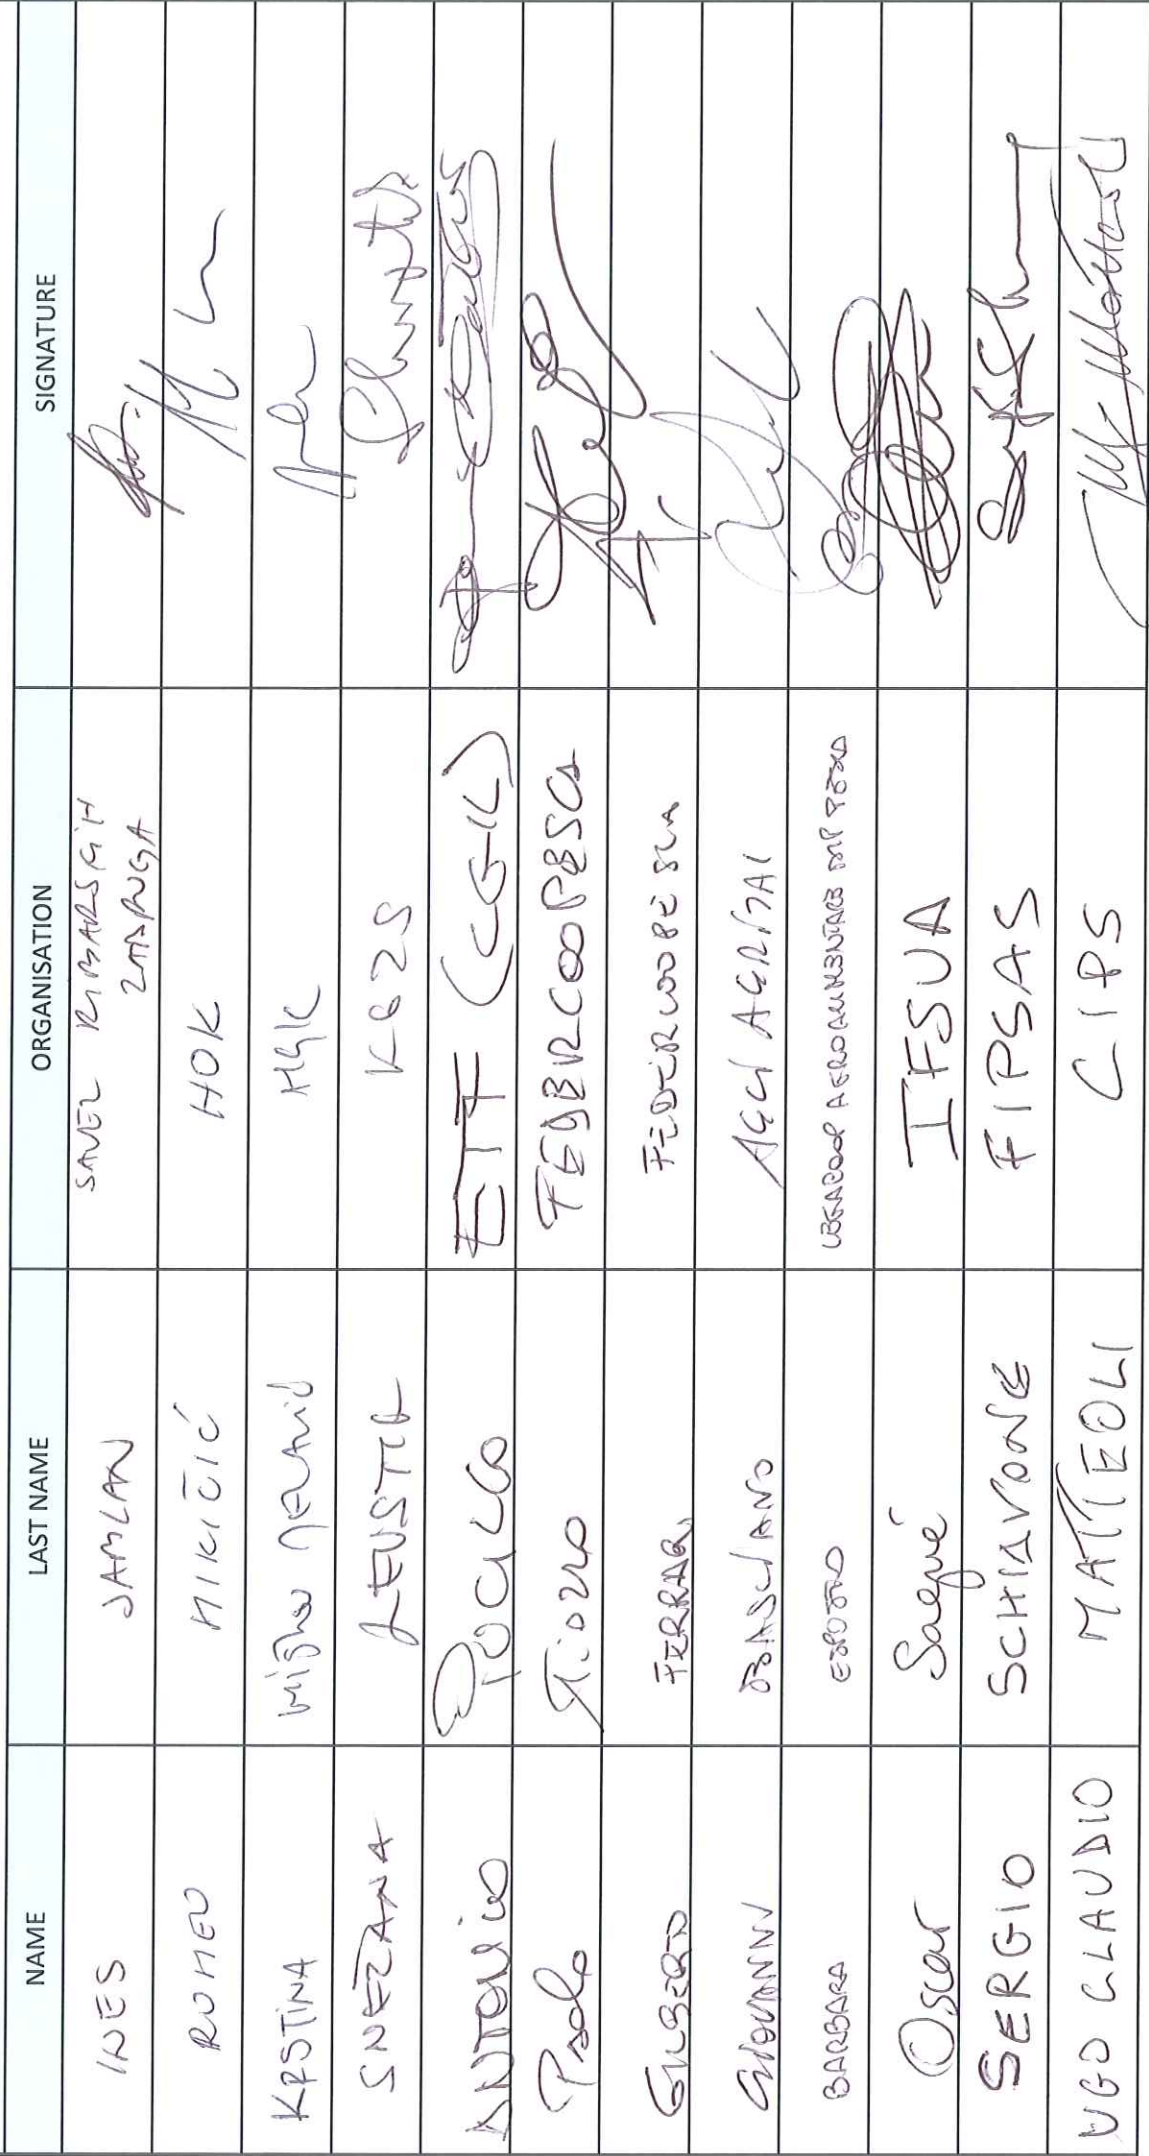 NAME LAST NAME ORGANISATION SIGNATURE
INES JABLAN SAVEZ RIBARSKIH
ZADRUGA
ROMEO MIKIČIĆ HOK
KRSTINA HGK
SNEŽANA LEVSTIK
ANTONIO PUCILLO ETF (CGIL)
Paolo Tiozzo FEDERCOOPESCA
GILBERTO FERRARI FEDERCOOPESCA
GIOVANNI BASCIANO AGCI AGRITAL
BARBARA ESPOSTO LEGACOOP AGROALIMENTARE DIP PESCA
Oscar Sagué IFSUA
SERGIO SCHIAVONE FIPSAS
UGO CLAUDIO MATTEOLI CIPS